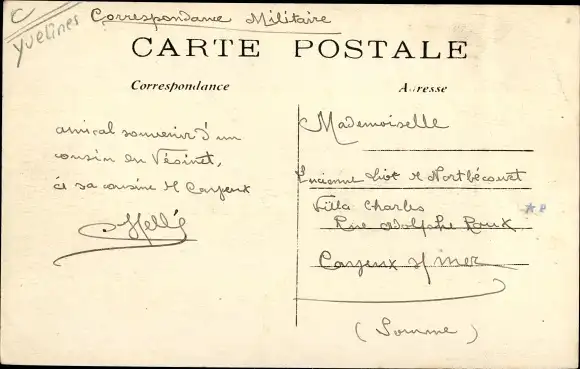 C
Yvelines
Correspondance Militaire
CARTE POSTALE
Correspondance
Adresse
amical souvenir d'un
cousin du Vésinet,
à sa cousine de Cayeux
Mademoiselle
Lucienne Liot de Nortbécourt
Villa Charles
Rue Adolphe Roux
Cayeux s/ mer
(Somme)